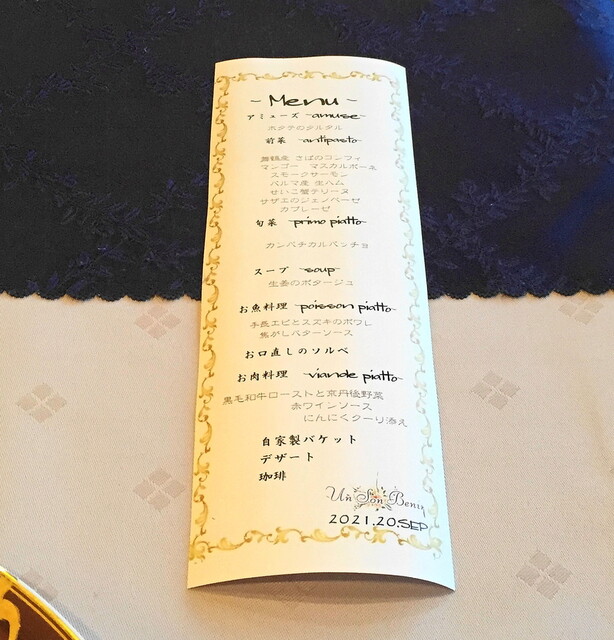 - Menu -
アミューズ -amuse-
ホタテのタルタル
前菜 -antipasto-
舞鶴産 さばのコンフィ
マンゴー マスカルポーネ
スモークサーモン
パルマ産 生ハム
せいこ蟹テリーヌ
サザエのジェノベーゼ
カプレーゼ
旬菜 -primo piatto-
カンパチカルパッチョ
スープ -soup-
生姜のポタージュ
お魚料理 -poisson piatto-
手長エビとスズキのポワレ
焦がしバターソース
お口直しのソルベ
お肉料理 -viande piatto-
黒毛和牛ローストと京丹後野菜
赤ワインソース
にんにくクーリ添え
自家製バケット
デザート
珈琲
Un Son Benir
2021.20.SEP